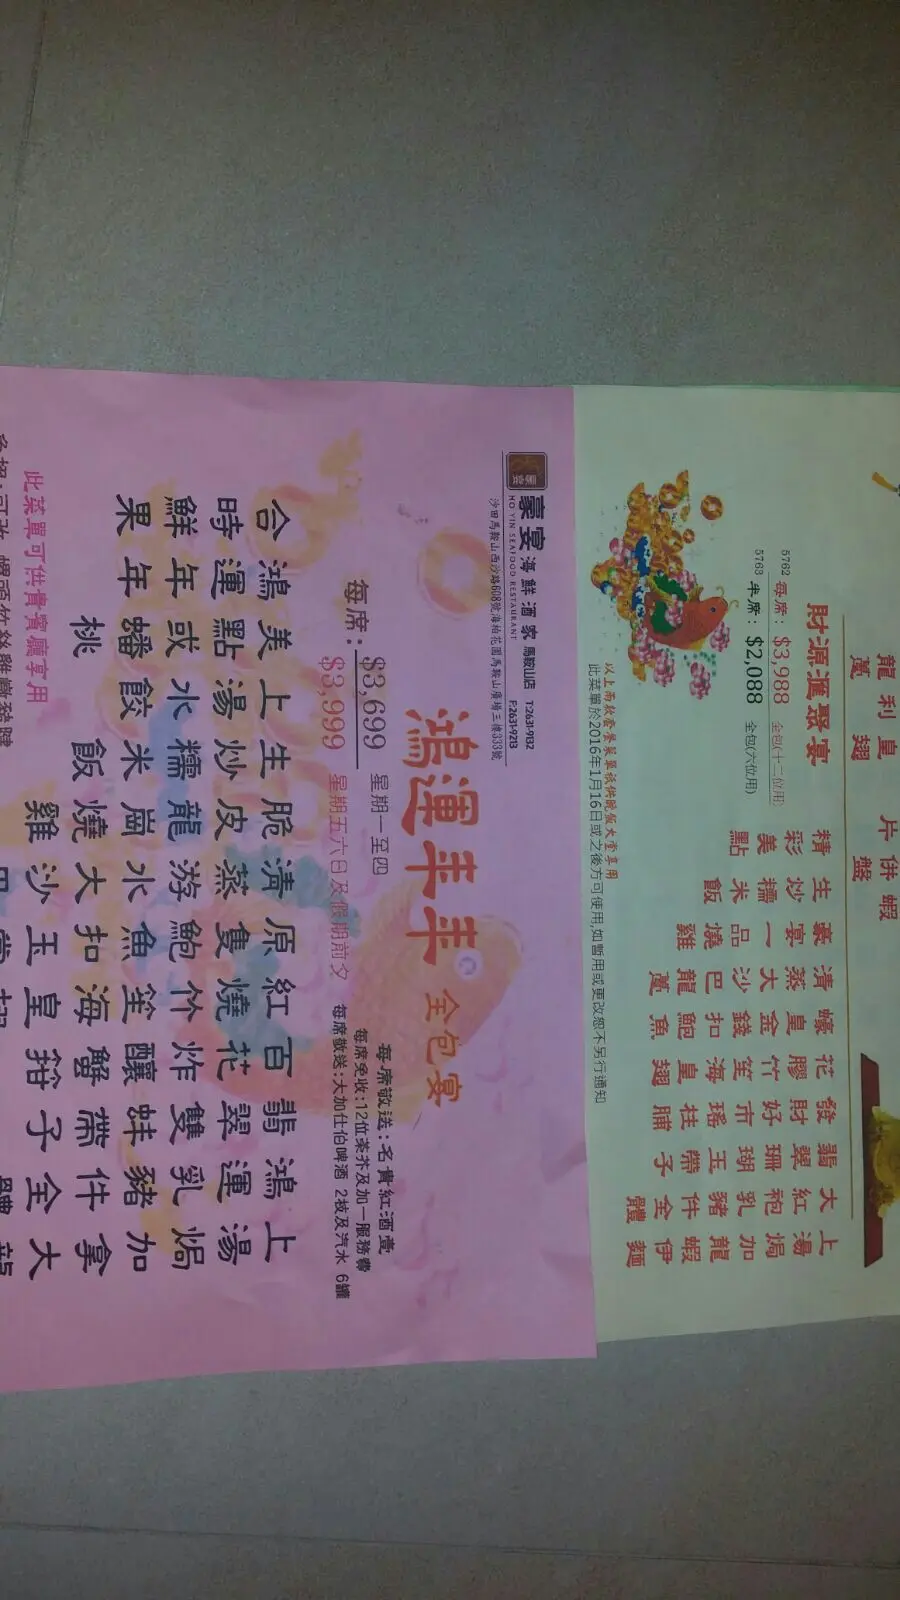 龍利皇 片併蝦
躉翅 盤
財源滙聚宴
5762 每席：$3,988 全包(十二位用)
5763 半席：$2,088 全包(六位用)
上湯焗加龍蝦伊麵
大紅袍乳豬件全體
翡翠珊瑚玉帶子
發財好市瑤柱脯
花膠竹笙海皇翅
蠔皇金錢扣鮑魚
清蒸大沙巴龍躉
豪宴一品燒雞
生炒糯米飯
精彩美點
以上兩款套餐菜單祇供晚飯大堂享用
此菜單於2016年1月16日或之後方可使用,如暫用或更改恕不另行通知
豪宴海鮮酒家 馬鞍山店 T:2631-9132
HO YIN SEAFOOD RESTAURANT F:2631-9213
沙田馬鞍山西沙路608號海柏花園馬鞍山廣場三樓333號
鴻運年年 全包宴
每席：$3,699 星期一至四
$3,999 星期五六日及假期前夕
每席敬送：名貴紅酒壹
每席免收：12位茶芥及加一服務費
每席敬送：大加仕伯啤酒 2枝及汽水 6罐
上湯焗加拿大龍
鴻運乳豬件全體
翡翠雙蚌帶子
百花炸釀蟹箝
紅燒竹笙海皇翅
原隻鮑魚扣玉掌
清蒸游水大沙
脆皮龍崗燒雞
生炒糯米飯
上湯水餃
美點或蟠桃
鴻運年年
合時鮮果
此菜單可供貴賓廳享用